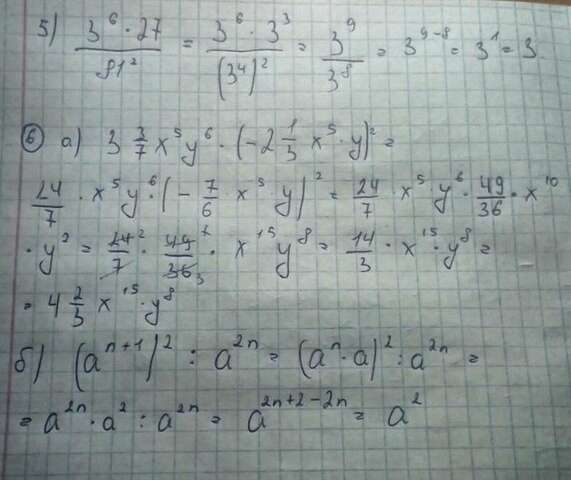 5) (3^6 · 27)/(81^2) = (3^6 · 3^3)/((3^4)^2) = 3^9/3^8 = 3^(9-8) = 3^1 = 3
6) а) 3 3/7 x^5 y^6 · (-2 1/3 x^5 · y)^2 =
24/7 · x^5 y^6 · (- 7/6 · x^5 · y)^2 = 24/7 · x^5 · y^6 · 49/36 · x^10
· y^2 = 24^2/7 · 49^7/36_3 · x^15 y^8 = 14/3 · x^15 · y^8 =
= 4 2/3 x^15 · y^8
б) (a^(n+1))^2 : a^(2n) = (a^n · a)^2 : a^(2n) =
= a^(2n) · a^2 : a^(2n) = a^(2n+2-2n) = a^2